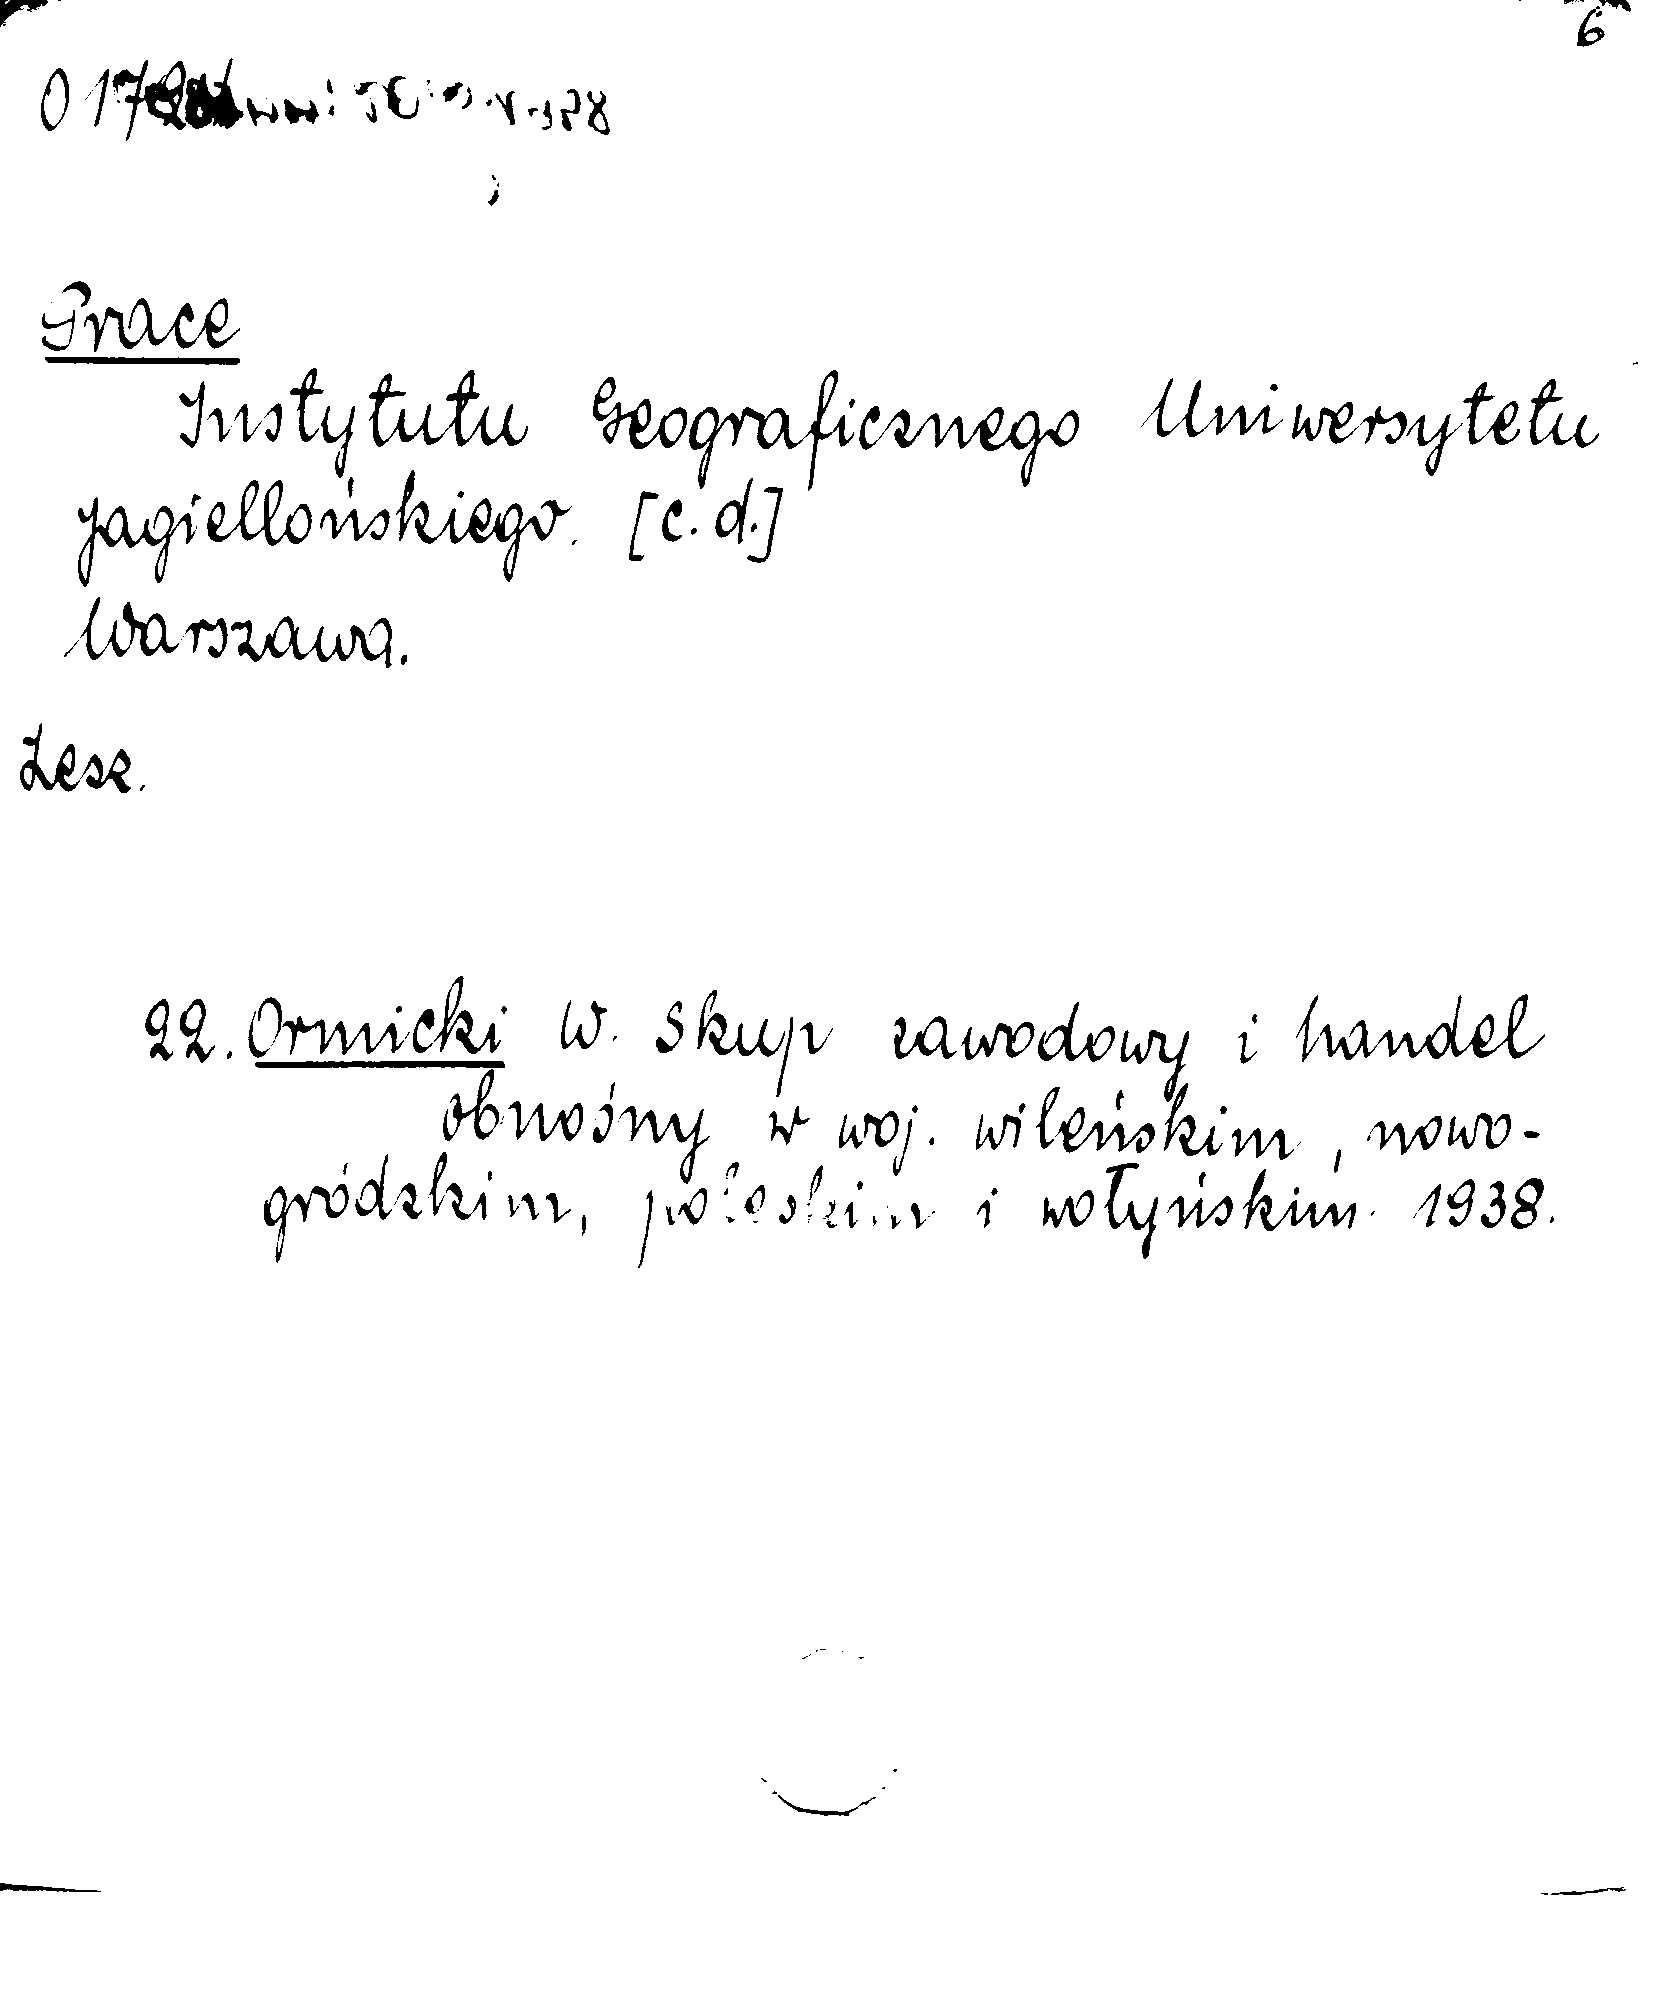 6
Prace
Instytutu Geograficznego Uniwersytetu
Jagiellońskiego. [c.d.]
Warszawa.
Zesz.
22. Ormicki W. Skup zawodowy i handel
obnośny w woj. wileńskim, nowo-
gródzkim, poleskim i wołyńskim. 1938.